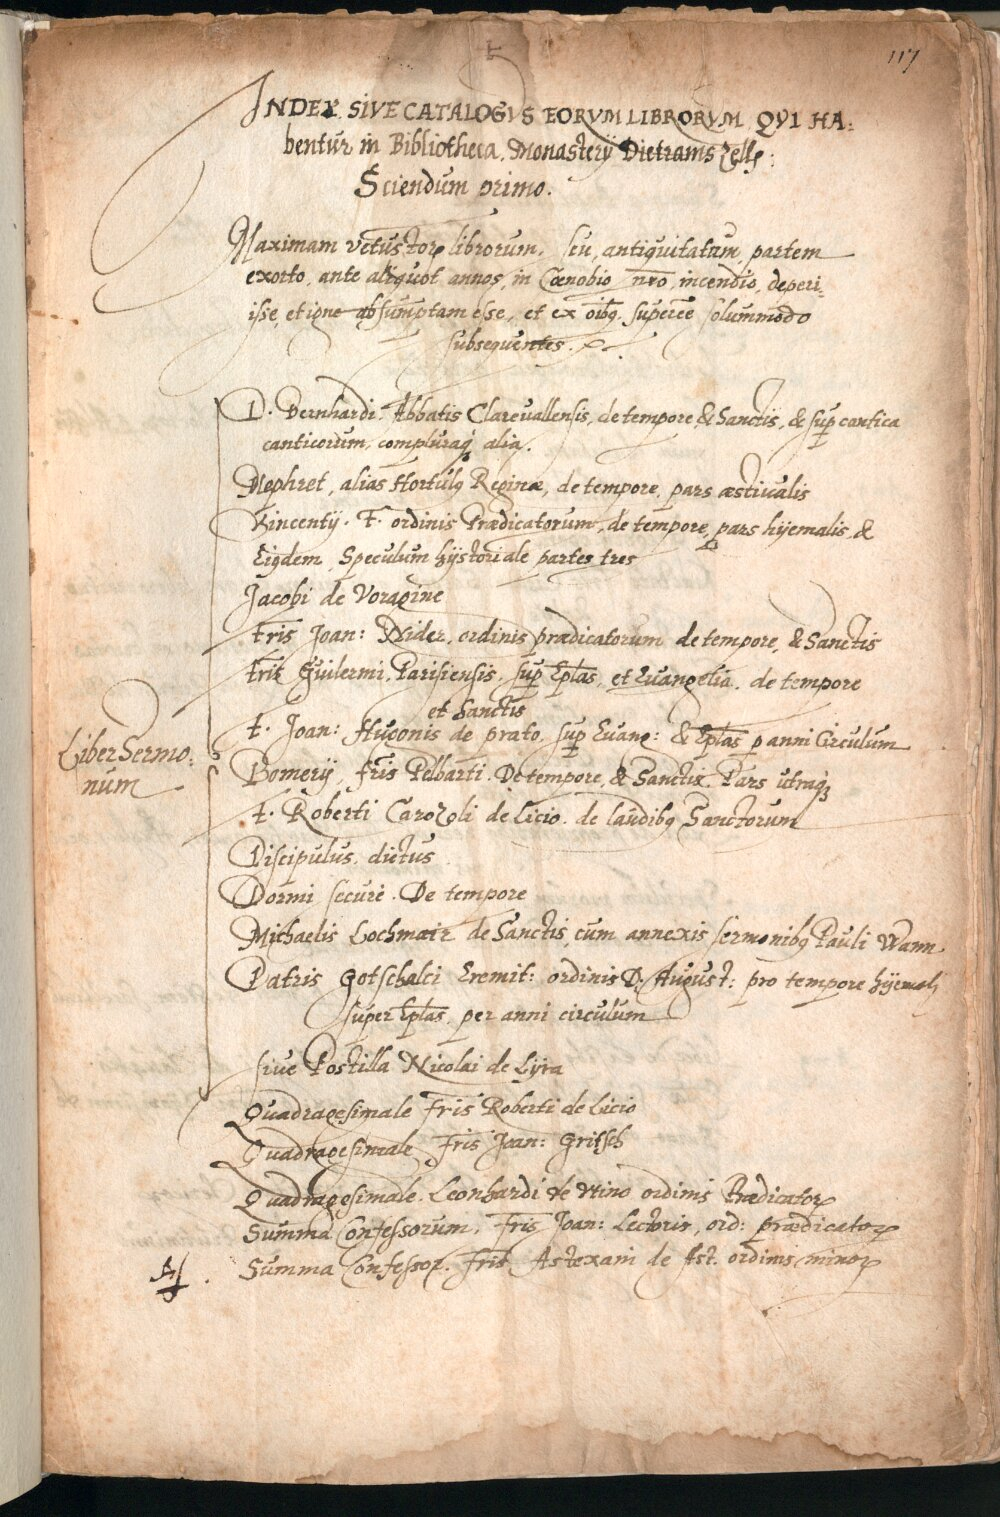 117
INDEX SIVE CATALOGVS EORVM LIBRORVM QVI HA:
bentur in Bibliotheca Monasterij Dietramszell:
Sciendum primo.
Maximam vetustorꝝ librorum, seu antiquitatum, partem
exorto, ante aliquot annos, in Cœnobio nr̄o incendio, deperi:
isse, et igne absumptam esse, et ex oībꝰ superēē solummodo
subsequentes.
D. Bernhardi Abbatis Clarevallensis, de tempore, & Sanctis, & sup cantica
canticorum, compluraqꝫ alia.
Mephret, alias Hortulꝰ Reginæ, de tempore, pars æstivalis
Vincentij F. ordinis Prædicatorum, de tempore, pars hijemalis, &
Eiꝰdem Speculum hijstoriale partes tres
Jacobi de Voragine
Fr̄is Joan: Nider, ordinis prædicatorum de tempore, & Sanctis
Fr̄is Guilermi Parisiensis, sup Ep̄las, et Euangelia, de tempore
et Sanctis
F. Joan: Hugonis de prato, sup Euang: & Ep̄las p anni Circulum
Liber Sermo:
num
Pomerij, fr̄is Pelbarti De tempore, & Sanctis. Pars utraqꝫ
F. Roberti Carozoli de licio de laudibꝰ Sanctorum
Discipulus dictus
Dormi secure. De tempore
Michaelis Lochmair de Sanctis, cum annexis sermonibꝰ Pauli Wann
Patris Gotschalci Eremit: ordinis D. August: pro tempore hijemali
super Ep̄las per anni circulum
sive Postilla Nicolai de Lyra
Quadragesimale Fr̄is Roberti de Licio
Quadragesimale Fr̄is Joan: Gritsch
Quadragesimale Leonhardi de Vtino ordinis Prædicatorꝝ
Summa Confessorum, fr̄is Joan: Lectoris, ord: prædicatorꝝ
Summa Confessorꝝ. Fr̄is Astexani de Ast. ordinis minorꝝ